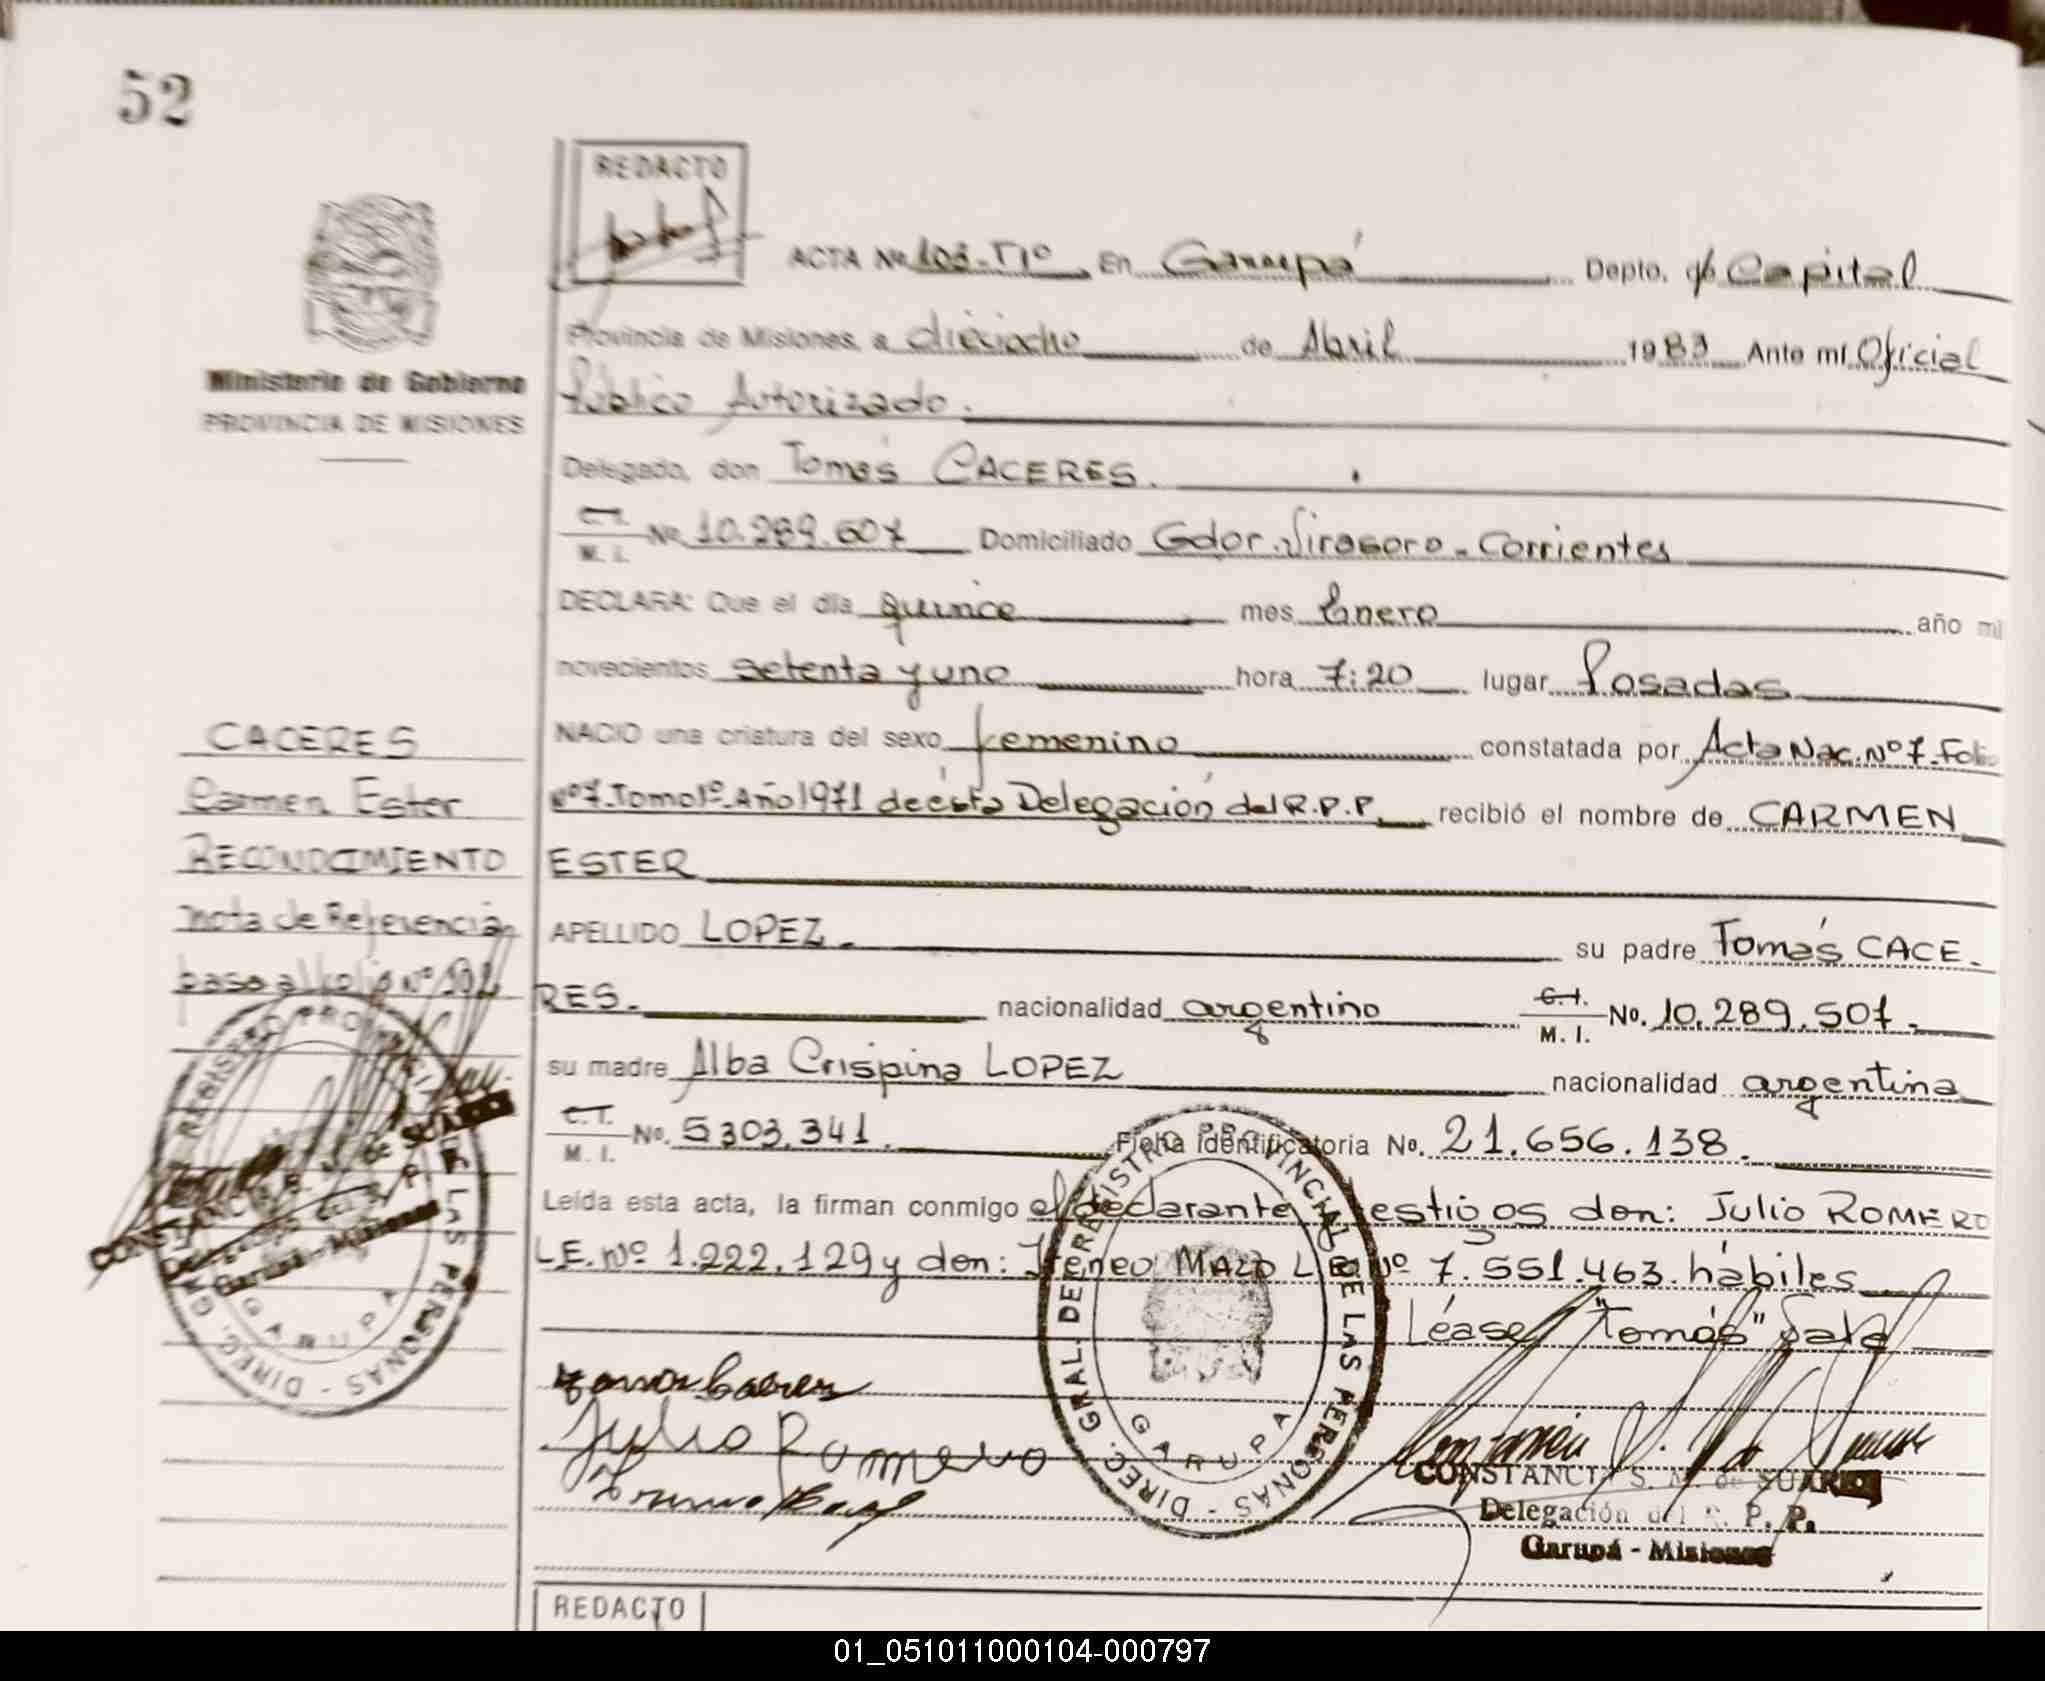 52
REDACTO
ACTA Nº 103-Tº1º En Garupá Depto. Capital
Ministerio de Gobierno
PROVINCIA DE MISIONES
Provincia de Misiones, a dieciocho de Abril 1983 Ante mí Oficial
Público Autorizado.
Delegado, don Tomás CACERES.
C.I.
M. I. Nº 10.289.507 Domiciliado Gdor. Virasoro - Corrientes
DECLARA: Que el día quince mes Enero año mil
novecientos setenta y uno hora 7:20 lugar Posadas
NACIO una criatura del sexo femenino constatada por Acta Nac. Nº 7. Folio
Nº 7. Tomo 1º. Año 1971 de ésta Delegación del R.P.P. recibió el nombre de CARMEN
ESTER
APELLIDO LOPEZ. su padre Tomás CACE-
RES. nacionalidad argentino C.I.
M. I. No. 10.289.507.
su madre Alba Crispina LOPEZ nacionalidad argentina
C.I.
M. I. No. 5303.341. Ficha identificatoria No. 21.656.138.
Leída esta acta, la firman conmigo el declarante testigos don: Julio ROMERO
L.E. Nº 1.222.129 y don: Ireneo MAZO L.E. Nº 7.551.463. hábiles
Léase "Tomás" Vale
CACERES
Carmen Ester
RECONOCIMIENTO
Nota de Referencia
paso al folio Nº 102
DIREC. GRAL. DE REGISTRO PROVINCIAL DE LAS PERSONAS
GARUPA
CONSTANCIA S. N. de SUAREZ
Delegación del R. P. P.
Garupá - Misiones
Tomas Caceres
Julio Romero
DIREC. GRAL. DE REGISTRO PROVINCIAL DE LAS PERSONAS
GARUPA
CONSTANCIA S. N. de SUAREZ
Delegación del R. P. P.
Garupá - Misiones
REDACTO
01_051011000104-000797